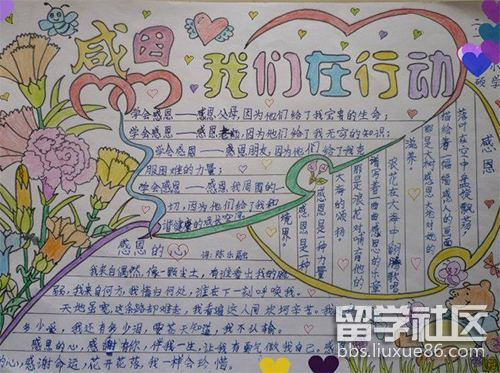 感恩
我们在行动
学会感恩——感恩父母,因为他们给了我宝贵的生命;
学会感恩——感恩老师,因为他们给了我无穷的知识;
学会感恩——感恩朋友,因为他们给了我克
服困难的力量;
学会感恩——感恩我周围的一
切,因为他们给了我
谐健康的成长空间
感恩
落叶在空中盘旋飘荡,
描绘着一幅感恩的画面
那是大树感恩大地对她的
滋养。
浪花在大海中翻腾歌唱
谱写着一曲曲感恩的乐章
那是浪花对哺育他的
大海的颂扬。
感恩是一种力量
感恩是一种
境界。
感恩的心 词:陈乐融
我来自偶然,像一颗尘土,有谁看出我的脆
弱,我来自何方,我情归何处,谁在下一刻呼唤我。
天地虽宽,这条路却难走,我看遍这人间坎坷辛苦。我
多少爱,我还有多少泪,要苍天知道,我不认输。
感恩的心,感谢有你,伴我一生,让我有勇气做我自己,感恩
的心,感谢命运,花开花落,我一样会珍惜。
留学社区
bbs.liuxue86.com